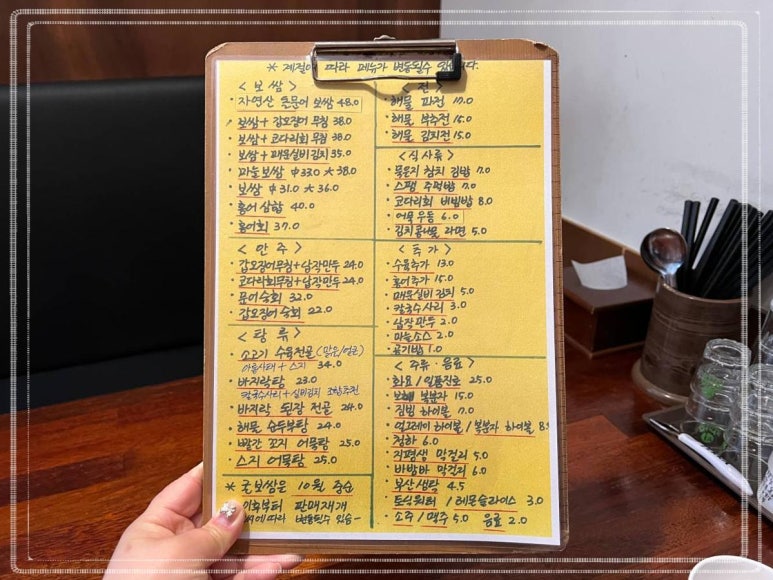 * 계절에 따라 메뉴가 변동될수 있습니다.
< 보쌈 >
· 자연산 돌문어 보쌈 48.0
· 보쌈 + 갑오징어 무침 38.0
· 보쌈 + 코다리회 무침 38.0
· 보쌈 + 매운실비김치 35.0
· 마늘보쌈 中33.0 大38.0
· 보쌈 中31.0 大36.0
· 홍어 삼합 40.0
· 홍어회 37.0
< 안주 >
· 갑오징어무침+삼각만두 24.0
· 코다리회무침+삼각만두 24.0
· 문어숙회 32.0
· 갑오징어 숙회 22.0
< 탕류 >
· 소고기 수육전골 (맑은/얼큰)
아롱사태 + 스지 34.0
· 바지락탕 23.0
칼국수사리 + 실비김치 조합추천
· 바지락 된장 전골 24.0
· 해물 순두부탕 24.0
· 빨간 꼬지 어묵탕 25.0
· 스지 어묵탕 25.0
* 굴보쌈은 10월 중순
이후부터 판매재개
따라 변동될수 있음~
< 전 >
· 해물 파전 17.0
· 해물 부추전 15.0
· 해물 김치전 15.0
< 식사류 >
· 묵은지 참치 김밥 7.0
· 스팸 주먹밥 7.0
· 코다리회 비빔밥 8.0
· 어묵우동 6.0
· 김치콩나물 라면 5.0
< 추가 >
· 수육추가 13.0
· 홍어추가 15.0
· 매운실비김치 5.0
· 칼국수사리 3.0
· 삼각만두 2.0
· 마늘소스 2.0
· 공기밥 1.0
< 주류 · 음료 >
· 화요 / 일품진로 25.0
· 보해 복분자 15.0
· 짐빔 하이볼 7.0
· 얼그레이 하이볼 / 복분자 하이볼 8.
· 청하 6.0
· 지평생 막걸리 5.0
· 바밤바 막걸리 6.0
· 부산생탁 4.5
· 토닉워터 / 레몬슬라이스 3.0
· 소주 / 맥주 5.0 음료 2.0